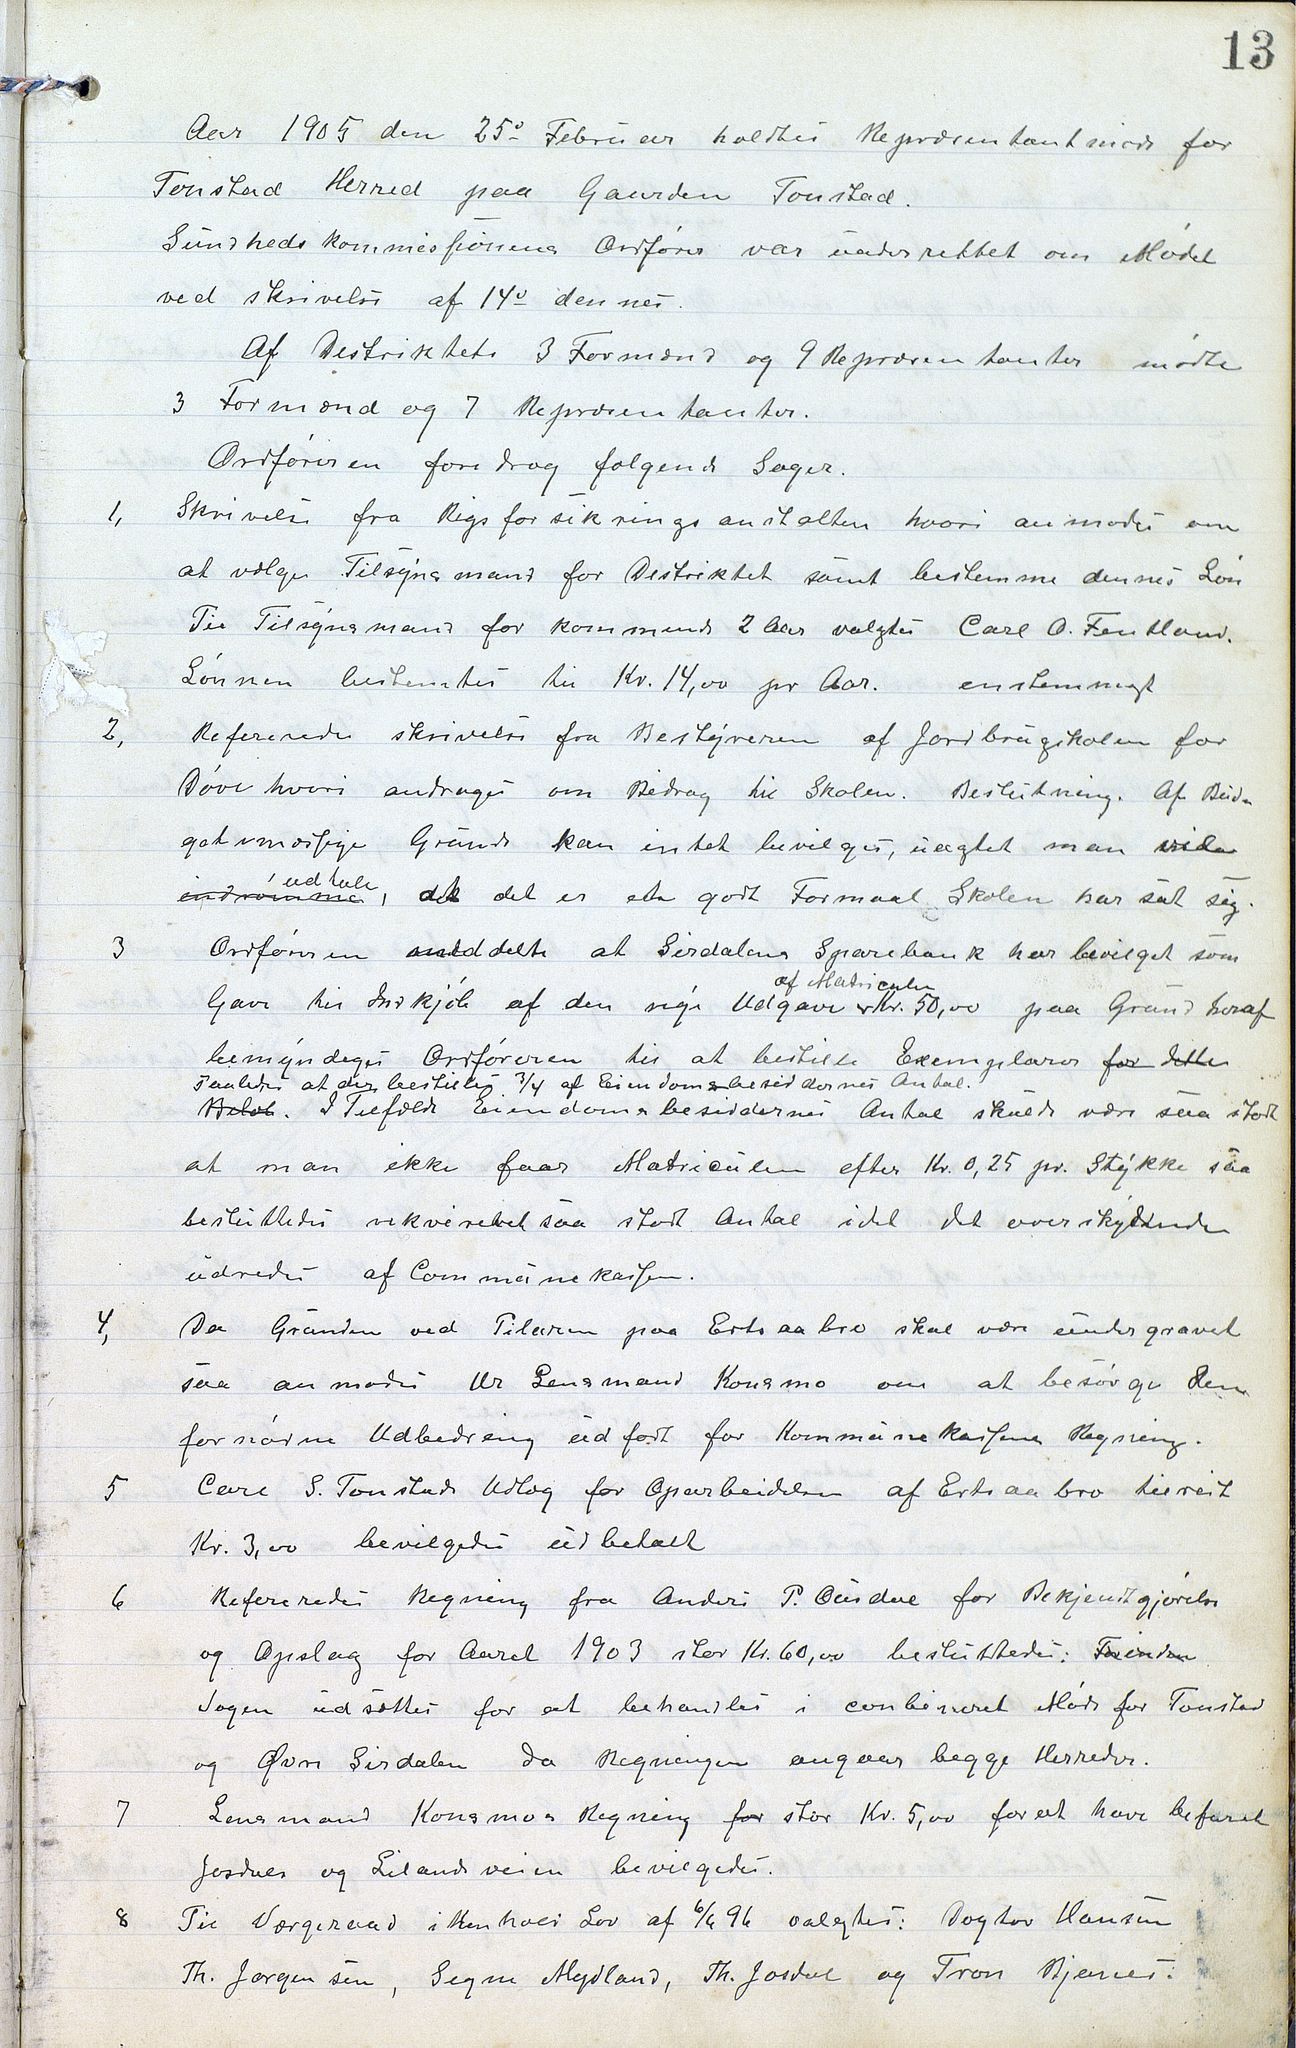 13
Aar 1905 den 25d Februar holdtes Repræsentantmøde for
Tonstad Herred paa Gaarden Tonstad.
Sundhedskommissionens Ordfører var underrettet om Mødet
ved skrivelse af 14d dennes.
Af Destriktets 3 Formænd og 9 Repræsentanter mødte
3 Formænd og 7 Repræsentanter.
Ordføreren foredrog følgende Sager.
1, Skrivelse fra Rigsforsikringsanstalten hvori anmodes om
at vælge Tilsynsmand for Destriktet samt bestemme dennes Løn
Til Tilsynsmand for kommende 2 Aar valgtes Carl O. Fentland.
Lønnen bestemtes til Kr. 14,00 pr Aar. enstemmigt
2, Refereredes skrivelse fra Bestyreren af Jordbrugskolen for
Døve hvori andrages om Bidrag til Skolen. Beslutning. Af Bud-
getsmæssige Grunde kan intet bevilges, uagtet man vil
udtale
indrømme, at det er et godt Formaal Skolen har sat sig.
3 Ordføreren meddelte at Sirdalens Sparebank har bevilget som
af Matriculen
Gave til Indkjøb af den nye Udgave Kr. 50,00 paa Grund heraf
bemyndiges Ordføreren til at bestille Exemplarer for dette
saaledes at der bestilles 3/4 af Eiendomsbesiddernes Antal.
Beløb. I Tilfælde Eiendomsbesiddernes Antal skulde være saa stort
at man ikke faar Matriculen efter Kr. 0,25 pr. Stykke saa
besluttedes rekvireret saa stort Antal idet det overskydende
udredes af Communekassen.
4, Da Grunden ved Pilaren paa Ertsaabro skal være undergravet
saa anmodes Hr Lensmand Konsmo om at besørge den
fornødne Udbedring udført for Kommunekassens Regning.
5 Carl S. Tonstads Udlæg for Oparbeidelsen af Ertsaabro
Kr. 3,00 bevilgedes udbetalt
6 Refereredes Regning fra Anders P. Ousdal for Bekjendtgjørelse
og Opslag for Aaret 1903 stor Kr. 60,00 besluttedes:
Sagen udsættes for at behandles i conbineret Møde for Tonstad
og Øvre Sirdalen da Regningen angaar begge Herreder.
7 Lensmand Konsmos Regning for stor Kr. 5,00 for at have befaret
Josdals og Lilandsveien bevilgedes.
8 Til Værgeraad i Henhold Lov af 6/6 96 valgtes: Dogtor Hansen
Th. Jørgensen, Segne Mydland, Th. Josdal og Tron Bjenes.